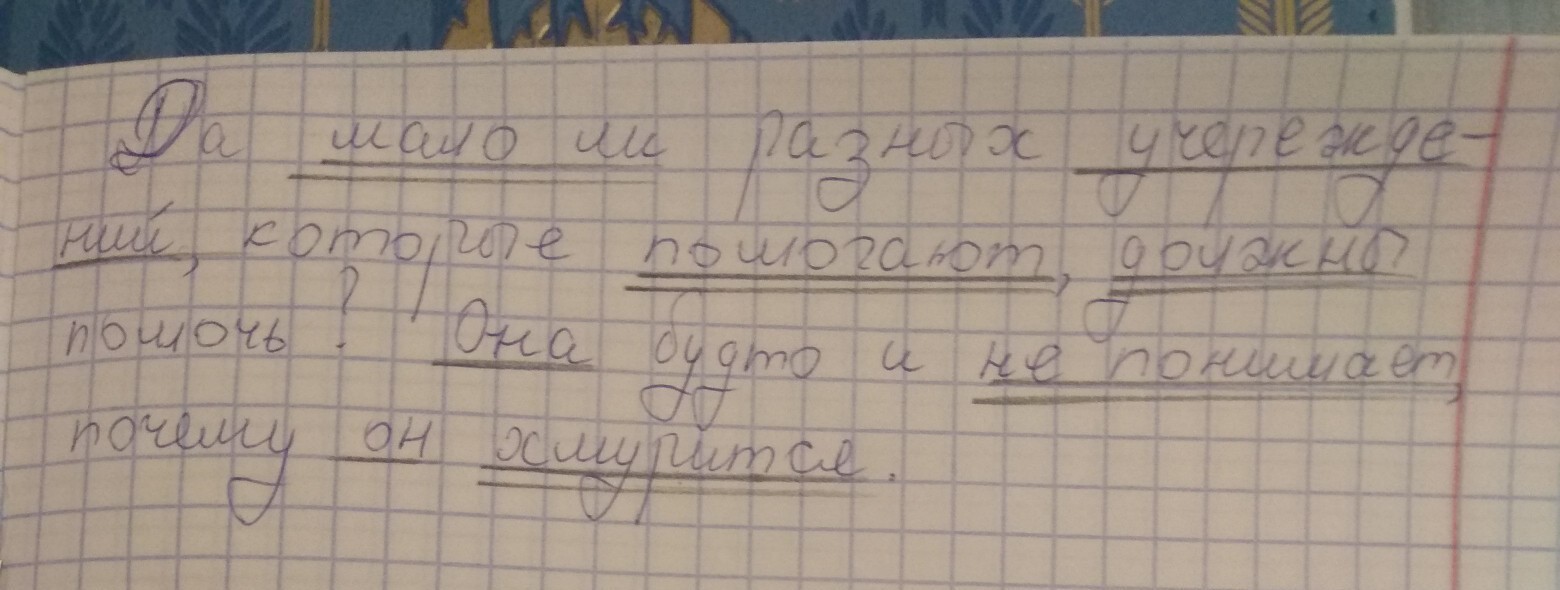 Да мало ли разных учережде-
ний, которые помогают, должны
помочь? Она будто и не понимает,
почему он хмурится.